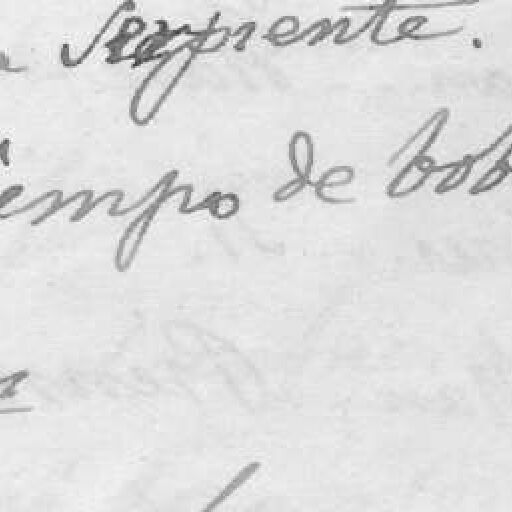 serpiente.
iempo de bob